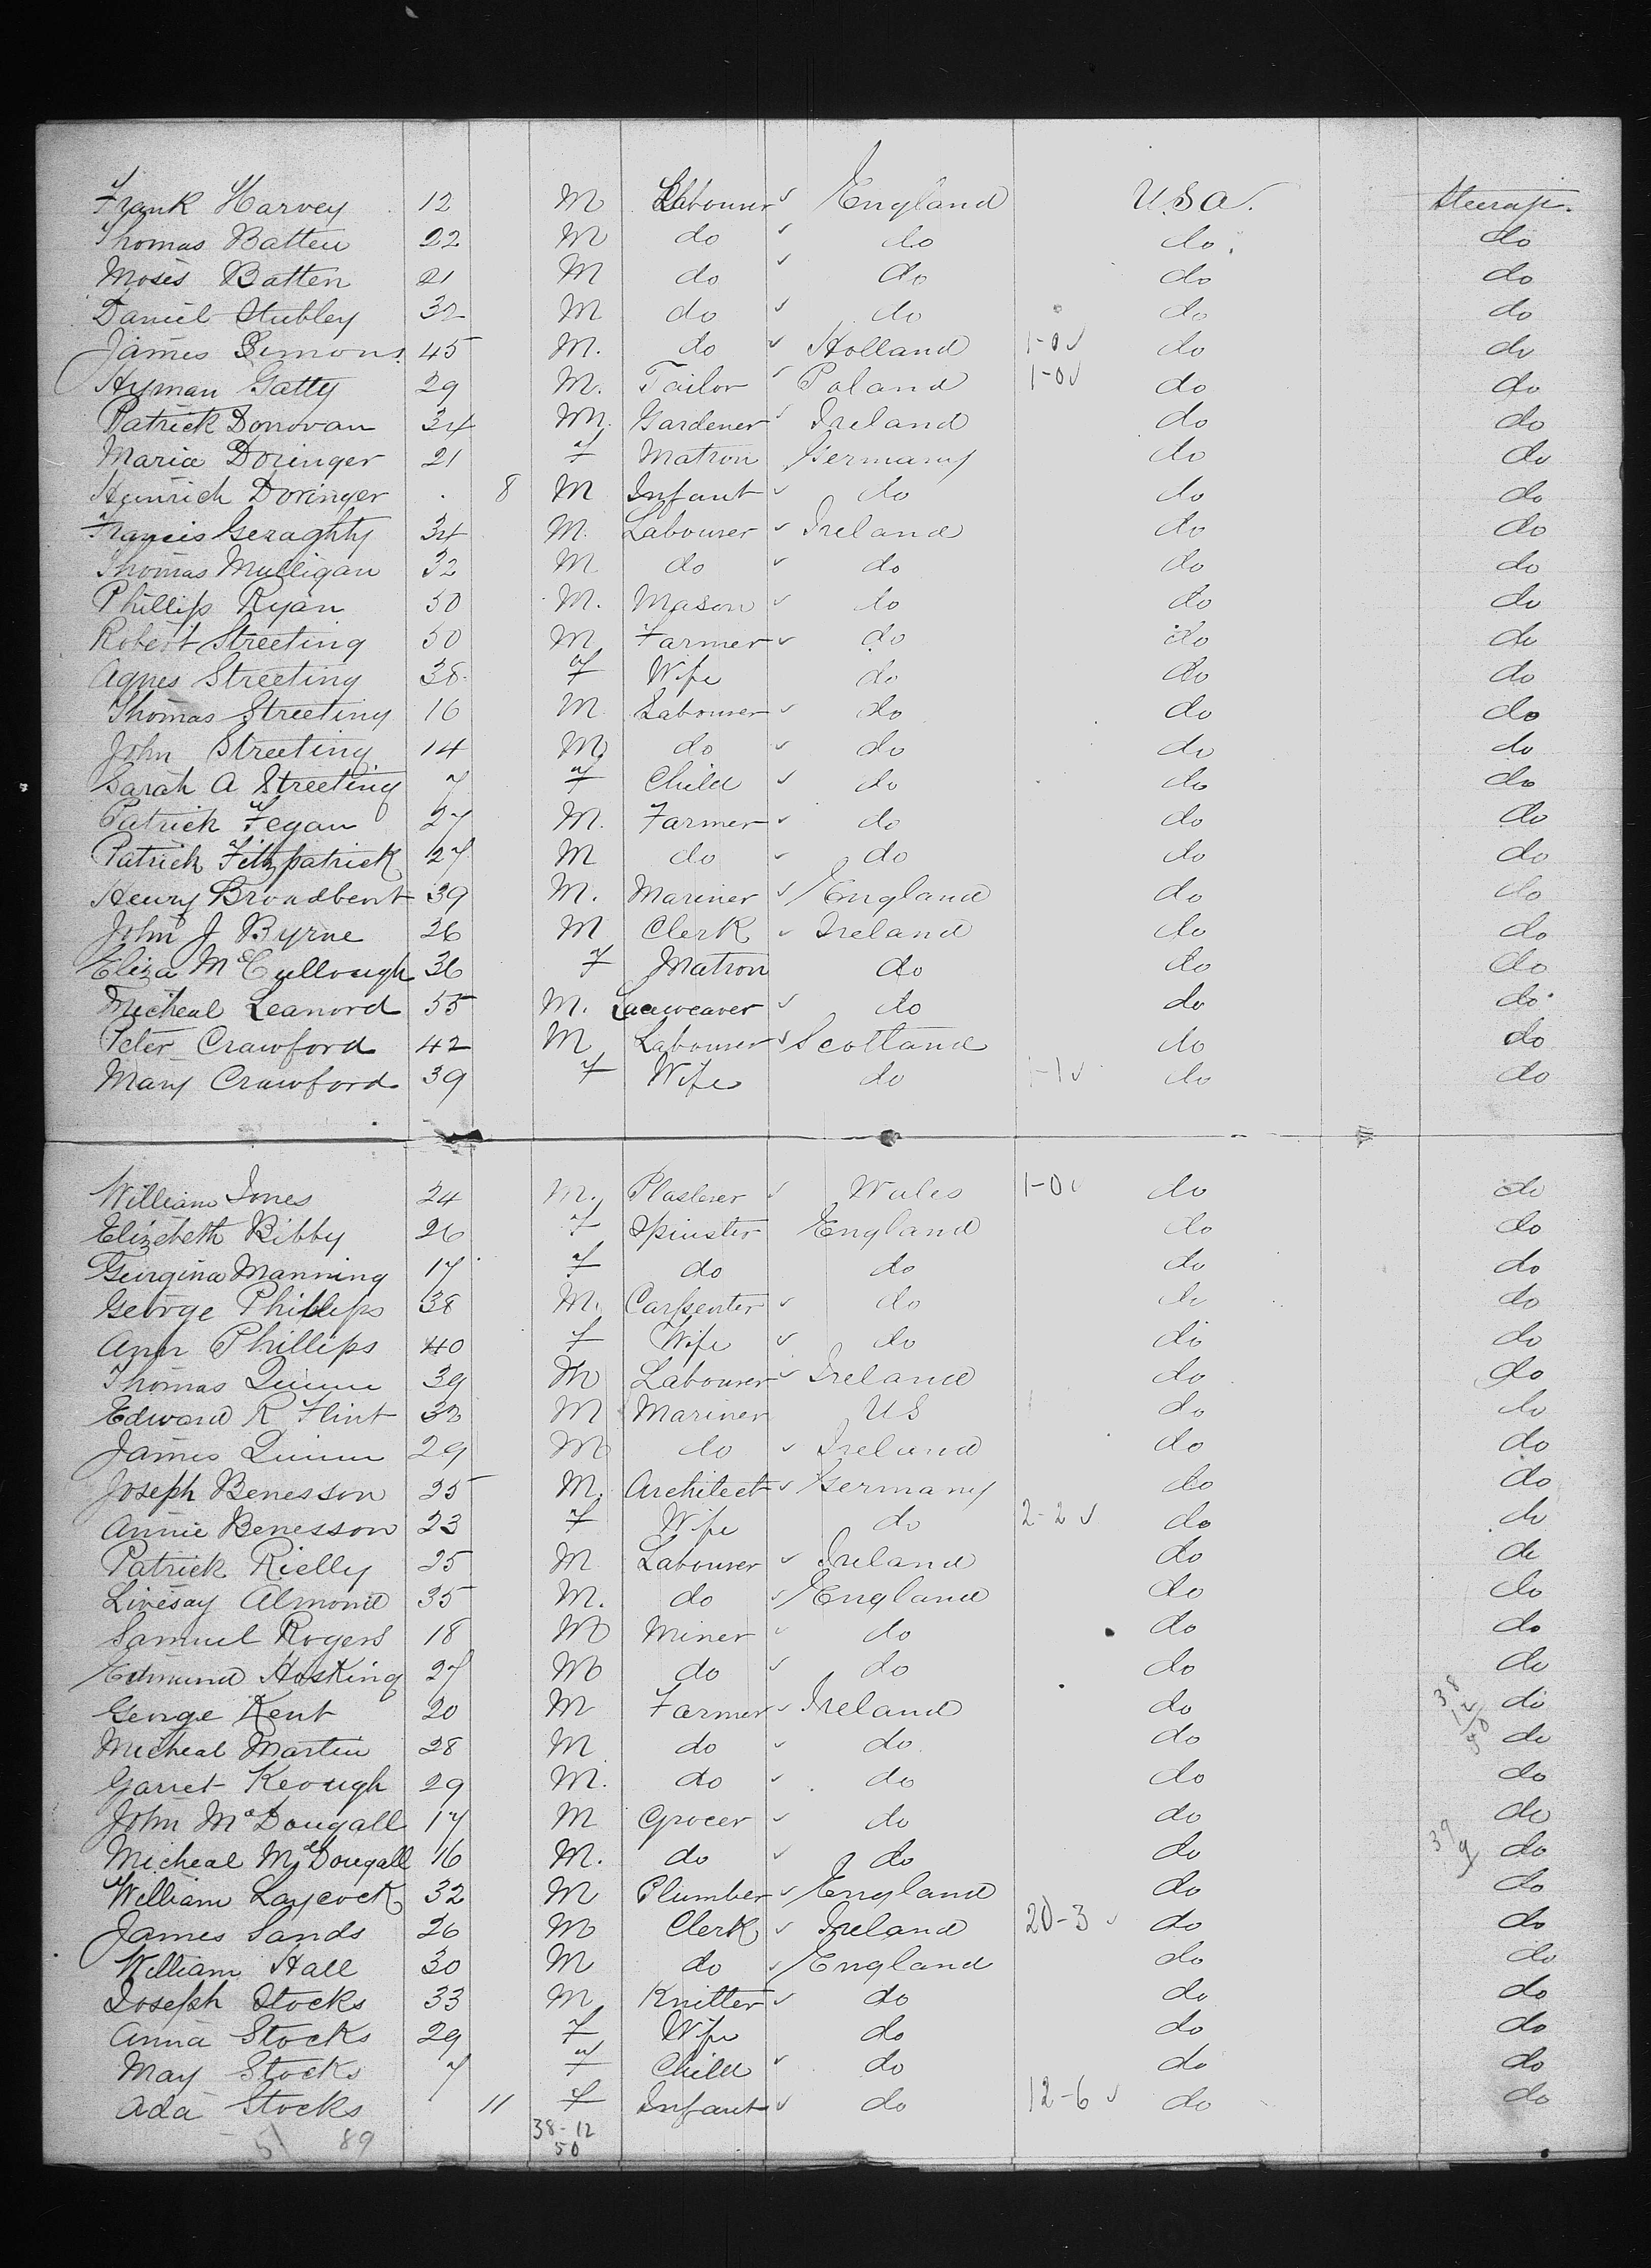 Frank Harvey 12 M Labourer ✓ England USA. Steerage.
Thomas Batten 22 M do ✓ do do do
Moses Batten 21 M do ✓ do do do
Daniel Stubley 32 M do ✓ do do do
James Simons 45 M. do ✓ Holland 1-0 ✓ do do
Hyman Gatty 29 M. Tailor ✓ Poland 1-0 ✓ do do
Patrick Donovan 34 M. Gardener ✓ Ireland do do
Maria Doringer 21 F Matron Germany do do
Heinrich Doringer 8 M Infant ✓ do do do
Francis Geraghty 34 M. Labourer ✓ Ireland do do
Thomas Mulligan 32 M do ✓ do do do
Phillip Ryan 50 M. Mason ✓ do do do
Robert Streeting 50 M Farmer ✓ do do do
Agnes Streeting 38 F Wife do do do
Thomas Streeting 16 M Labourer ✓ do do do
John Streeting 14 M do ✓ do do do
Sarah A Streeting 7 F Child ✓ do do do
Patrick Fegan 27 M. Farmer ✓ do do do
Patrick Fitzpatrick 27 M do ✓ do do do
Henry Broadbent 39 M. Mariner ✓ England do do
John J Byrne 26 M Clerk ✓ Ireland do do
Eliza McCullough 36 F Matron do do do
Micheal Leanord 55 M. Laceweaver ✓ do do do
Peter Crawford 42 M Labourer ✓ Scotland do do
Mary Crawford 39 F Wife do 1-1 ✓ do do
William Jones 24 M. Plasterer ✓ Wales 1-0 ✓ do do
Elizebeth Bibby 26 F Spinster England do do
Georgina Manning 17 F do do do do
George Phillips 38 M. Carpenter ✓ do do do
Ann Phillips 40 F Wife ✓ do do do
Thomas Quinn 39 M Labourer ✓ Ireland do do
Edward R Flint 32 M Mariner US do do
James Quinn 29 M do ✓ Ireland do do
Joseph Benesson 25 M. Architect ✓ Germany do do
Annie Benesson 23 F Wife do 2-2 ✓ do do
Patrick Rielly 25 M Labourer ✓ Ireland do do
Livesay Almond 35 M. do ✓ England do do
Samuel Rogers 18 M Miner ✓ do do do
Edmund Hosking 27 M do ✓ do do do
George Kent 20 M Farmer ✓ Ireland do 38 do
Micheal Martin 28 M do ✓ do do 12 50 do
Garret Keough 29 M. do ✓ do do do
John McDougall 17 M Grocer ✓ do do do
Micheal McDougall 16 M. do ✓ do do 39 9 do
William Laycock 32 M Plumber ✓ England do do
James Sands 26 M Clerk ✓ Ireland 20-3 ✓ do do
William Hall 30 M do ✓ England do do
Joseph Stocks 33 M Knitter ✓ do do do
Anna Stocks 29 F Wife do do do
May Stocks 7 F Child ✓ do do do
Ada Stocks 11 F Infant ✓ do 12-6 ✓ do do
51 89 38-12
50